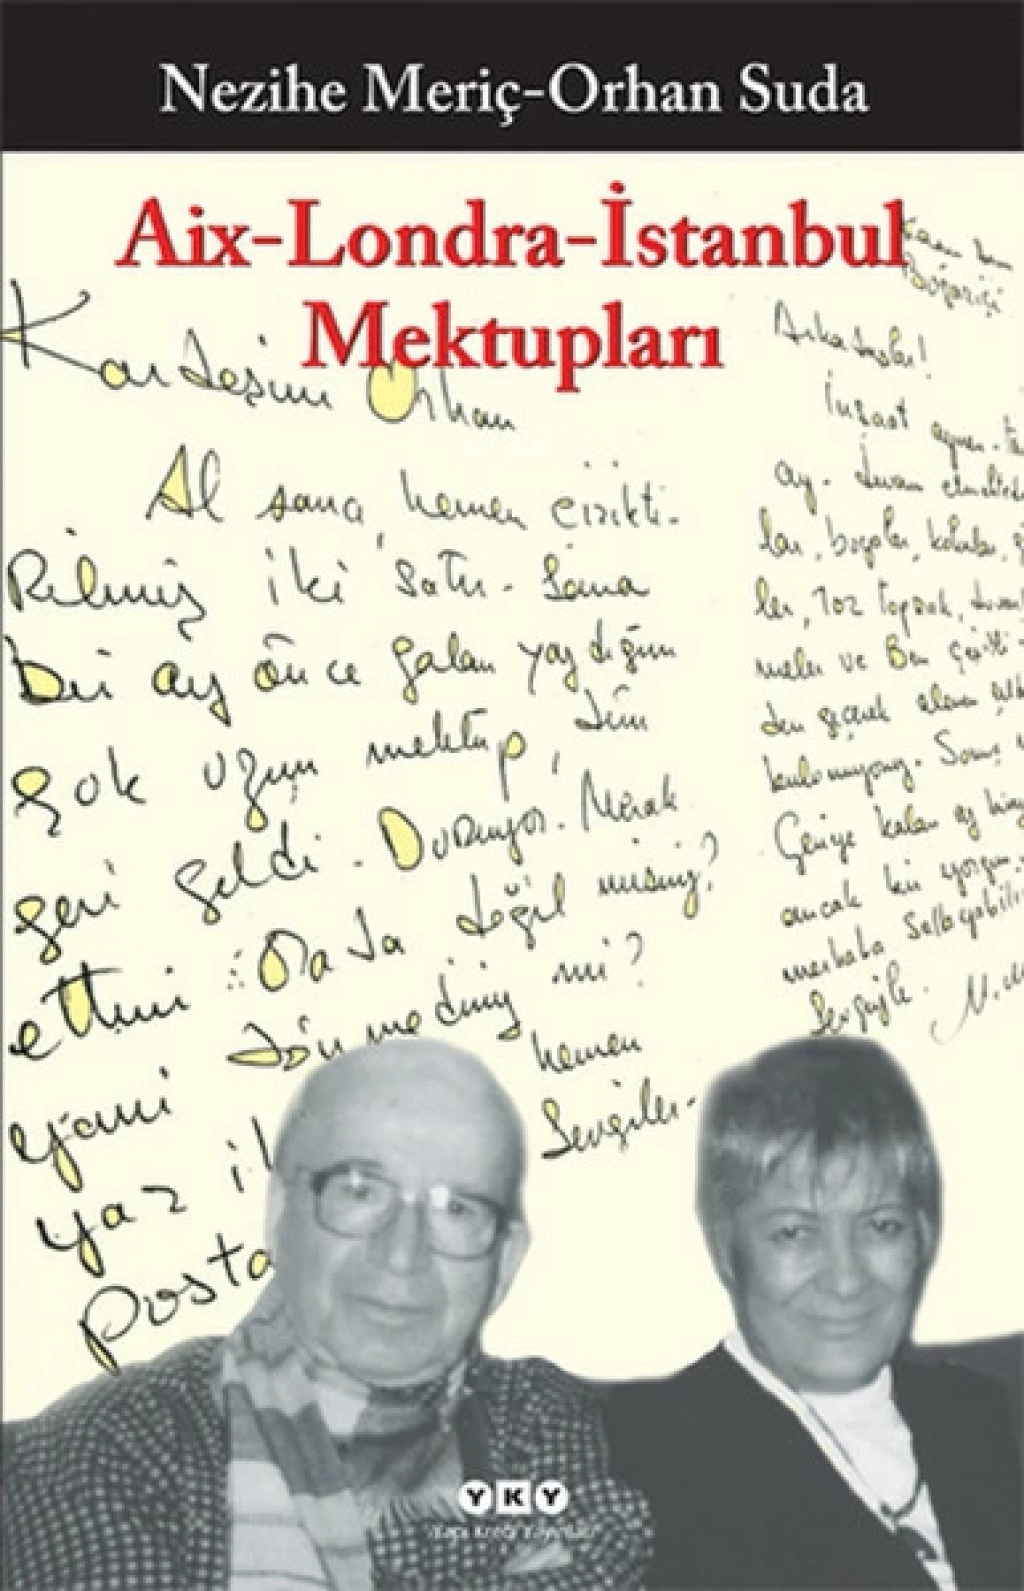 Nezihe Meriç-Orhan Suda
Aix-Londra-İstanbul
Mektupları
Kardeşim Orhan
Al sana, hemen çizikti-
Rilmiş iki satır. Sana
bir ay önce falan yazdığım
çok uzun mektup, dün
geri geldi. Duruyor. Merak
ettim: Orada değil misiniz?
yani dönmediniz mi?
hemen
yaz
Sevgiler-
posta
Boğaziçi
Arkadaşlar!
İnşaat aynen
ay. devam
lar, boyalar
ler, toz toprak,
meler ve Ben
den geçerek
Geriye kalan
ancak bir yorgun
merhaba
Sevgiyle.
YKY
Yapı Kredi Yayınları